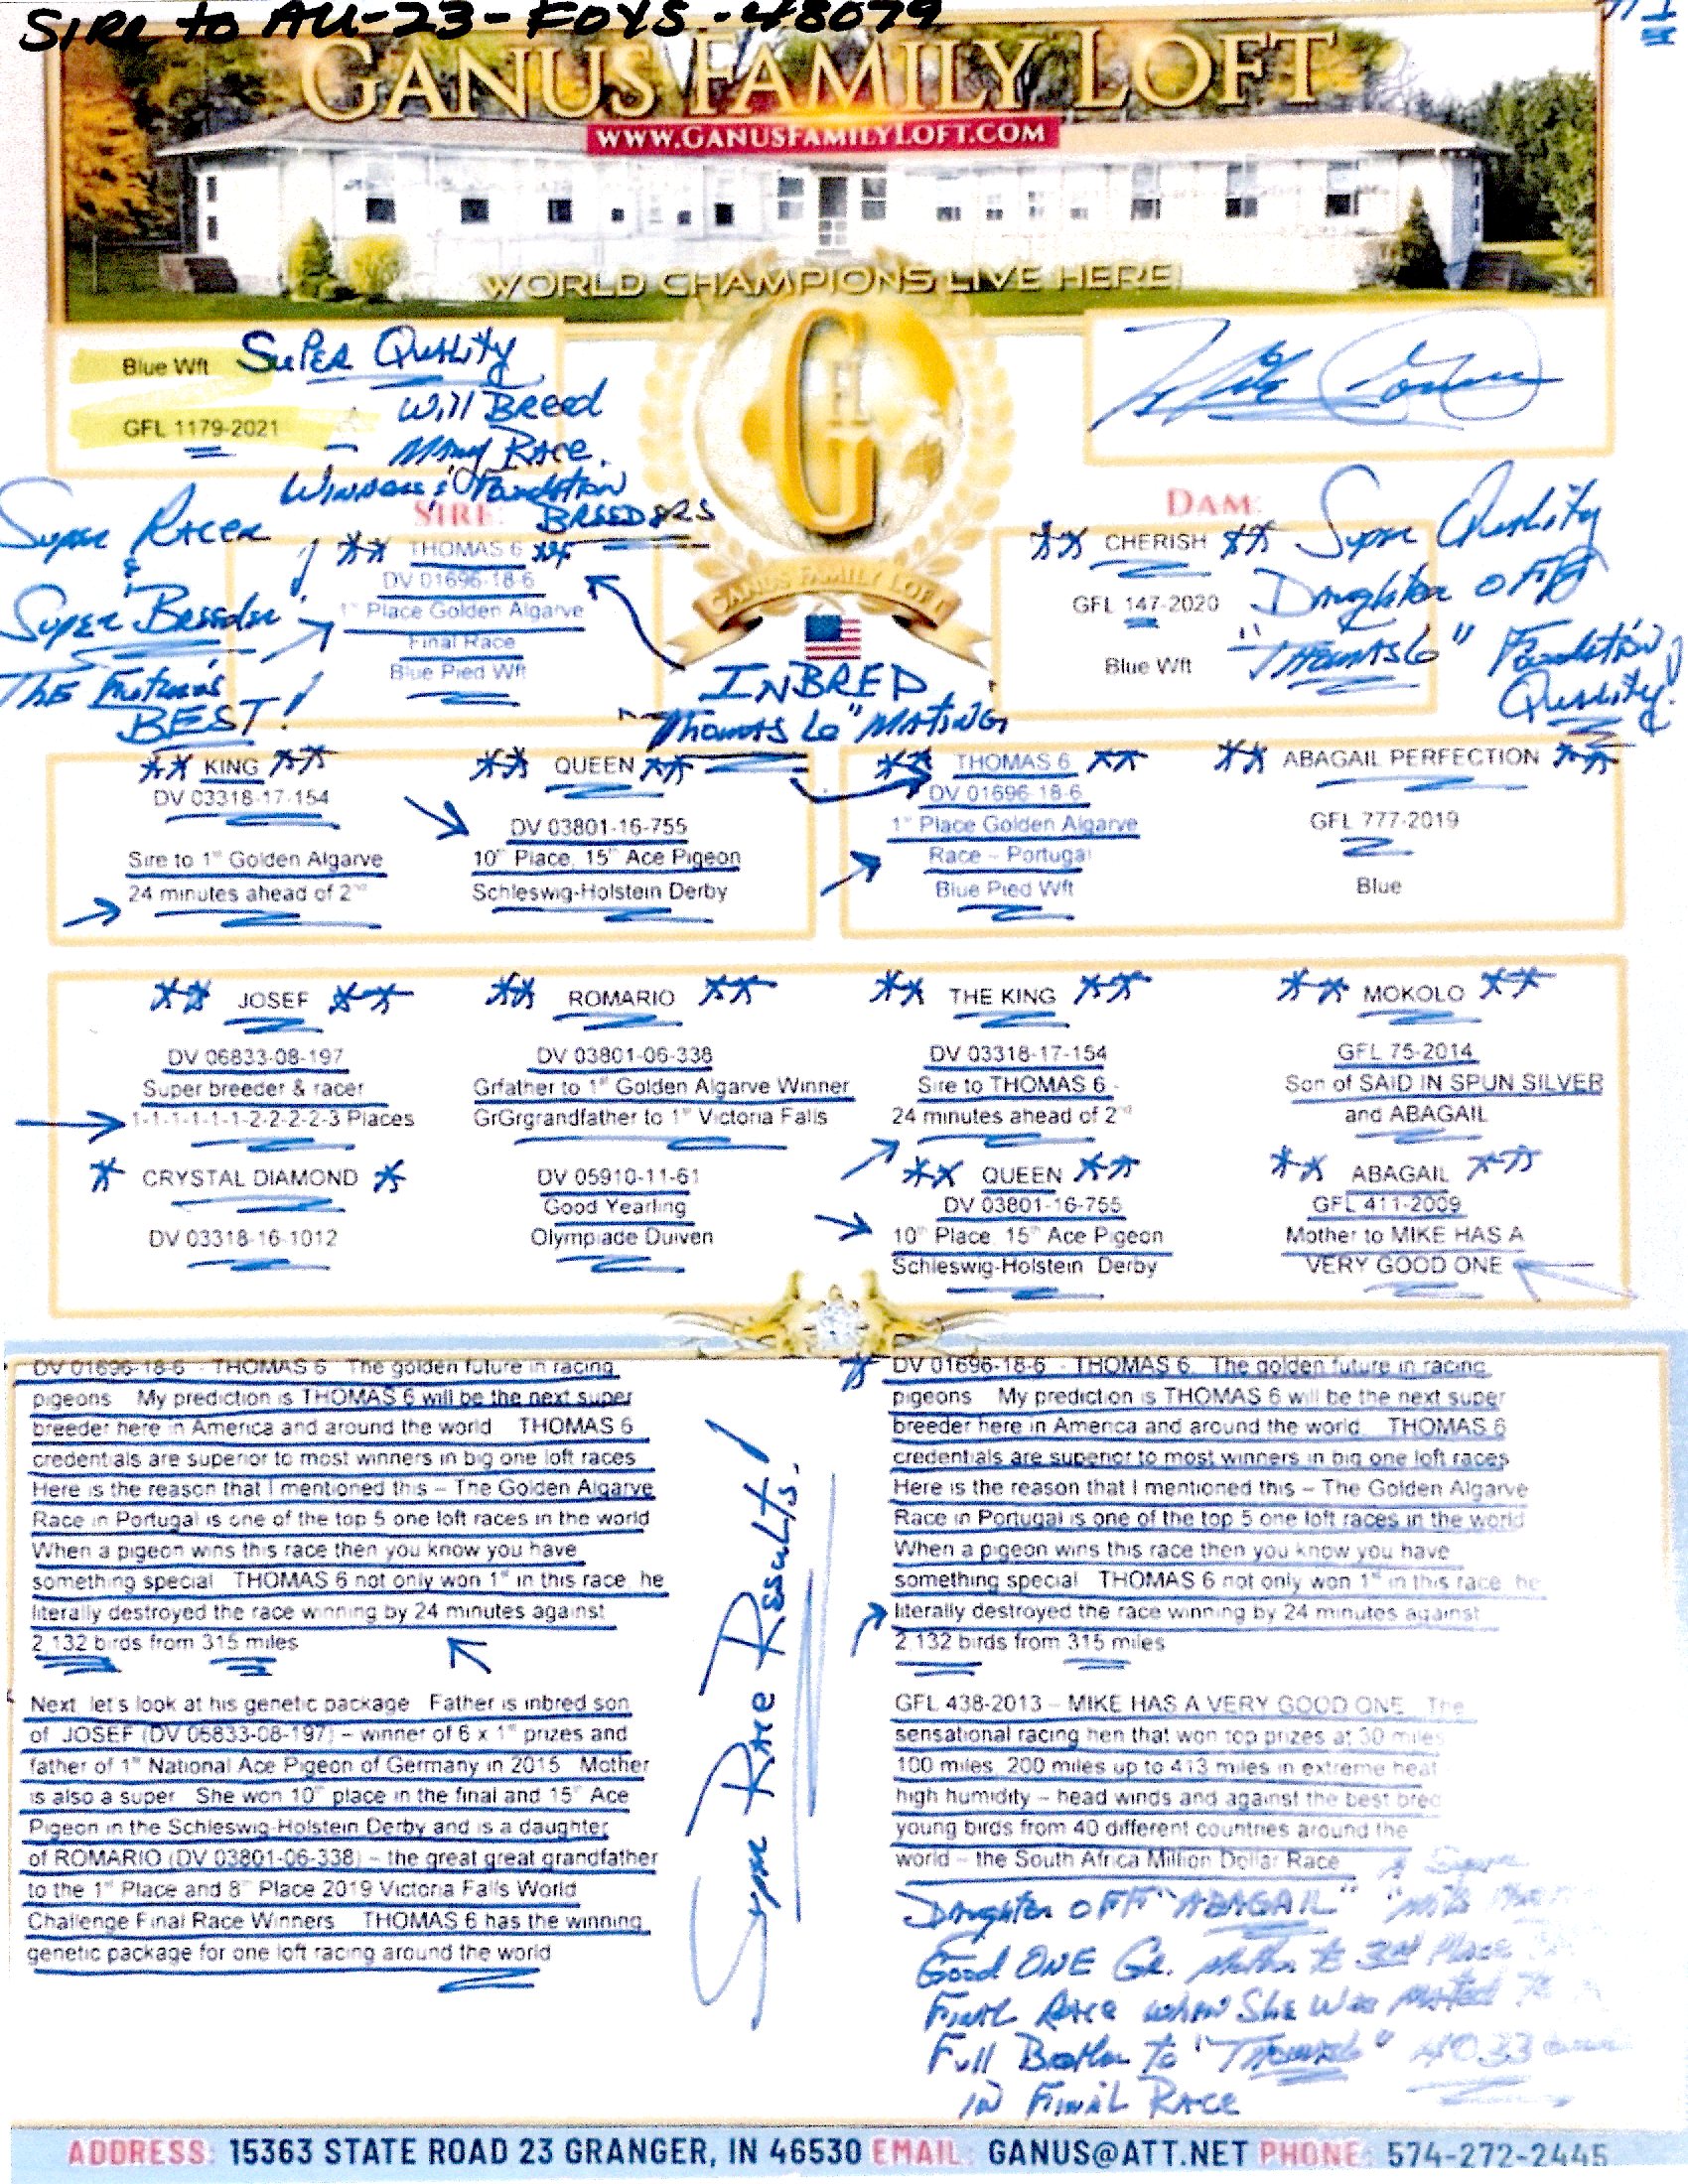 SIRE to AU-23-FOYS-48079
GANUS FAMILY LOFT
WWW.GANUSFAMILYLOFT.COM
WORLD CHAMPIONS LIVE HERE!
Blue Wft
GFL 1179-2021
SUPER QUALITY
Will BREED
MANY RACE
WINNERS & Foundation
BREEDERS
GFL
GANUS FAMILY LOFT
Super RACER
&
Super Breeder
THE Future's
BEST!
SIRE:
** THOMAS 6 **
DV 01696-18-6
1st Place Golden Algarve
Final Race
Blue Pied Wft
INBRED
"Thomas 6" MATING
DAM:
** CHERISH **
GFL 147-2020
Blue Wft
Super Quality
Daughter OFF
"THOMAS 6" Foundation
Quality!
** KING **
DV 03318-17-154
Sire to 1st Golden Algarve
24 minutes ahead of 2nd
** QUEEN **
DV 03801-16-755
10th Place, 15th Ace Pigeon
Schleswig-Holstein Derby
** THOMAS 6 **
DV 01696-18-6
1st Place Golden Algarve
Race – Portugal
Blue Pied Wft
** ABAGAIL PERFECTION **
GFL 777-2019
Blue
** JOSEF **
DV 06833-08-197
Super breeder & racer
1-1-1-1-1-1-2-2-2-2-3 Places
* CRYSTAL DIAMOND *
DV 03318-16-1012
** ROMARIO **
DV 03801-06-338
Grfather to 1st Golden Algarve Winner
GrGrgrandfather to 1st Victoria Falls
DV 05910-11-61
Good Yearling
Olympiade Duiven
** THE KING **
DV 03318-17-154
Sire to THOMAS 6 -
24 minutes ahead of 2nd
** QUEEN **
DV 03801-16-755
10th Place, 15th Ace Pigeon
Schleswig-Holstein Derby
** MOKOLO **
GFL 75-2014
Son of SAID IN SPUN SILVER
and ABAGAIL
** ABAGAIL **
GFL 411-2009
Mother to MIKE HAS A
VERY GOOD ONE
DV 01696-18-6 - THOMAS 6 The golden future in racing
pigeons My prediction is THOMAS 6 will be the next super
breeder here in America and around the world THOMAS 6
credentials are superior to most winners in big one loft races
Here is the reason that I mentioned this – The Golden Algarve
Race in Portugal is one of the top 5 one loft races in the world
When a pigeon wins this race then you know you have
something special THOMAS 6 not only won 1st in this race he
literally destroyed the race winning by 24 minutes against
2,132 birds from 315 miles
Next let's look at his genetic package Father is inbred son
of JOSEF (DV 06833-08-197) – winner of 6 x 1st prizes and
father of 1st National Ace Pigeon of Germany in 2015 Mother
is also a super She won 10th place in the final and 15th Ace
Pigeon in the Schleswig-Holstein Derby and is a daughter
of ROMARIO (DV 03801-06-338) – the great great grandfather
to the 1st Place and 8th Place 2019 Victoria Falls World
Challenge Final Race Winners THOMAS 6 has the winning
genetic package for one loft racing around the world
Super Race Results!
* DV 01696-18-6 - THOMAS 6. The golden future in racing
pigeons My prediction is THOMAS 6 will be the next super
breeder here in America and around the world THOMAS 6
credentials are superior to most winners in big one loft races
Here is the reason that I mentioned this – The Golden Algarve
Race in Portugal is one of the top 5 one loft races in the world
When a pigeon wins this race then you know you have
something special THOMAS 6 not only won 1st in this race he
literally destroyed the race winning by 24 minutes against
2,132 birds from 315 miles
GFL 438-2013 – MIKE HAS A VERY GOOD ONE The
sensational racing hen that won top prizes at 30 miles
100 miles, 200 miles up to 413 miles in extreme heat
high humidity – head winds and against the best bred
young birds from 40 different countries around the
world – the South Africa Million Dollar Race
A Super
Daughter OFF "ABAGAIL"
Good ONE Gr. Mother to 3rd Place
Final Race when She Was Mated To
Full Brother To "Thomas 6" 4033
IN FINAL RACE
ADDRESS: 15363 STATE ROAD 23 GRANGER, IN 46530 EMAIL: GANUS@ATT.NET PHONE: 574-272-2445